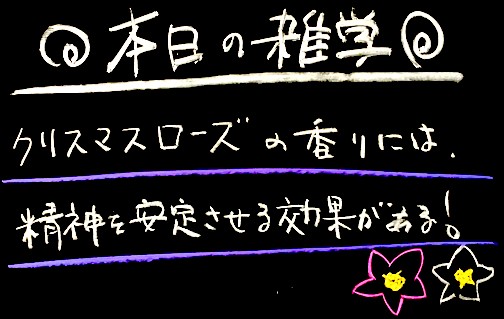 本日の雑学
クリスマスローズの香りには、
精神を安定させる効果がある!